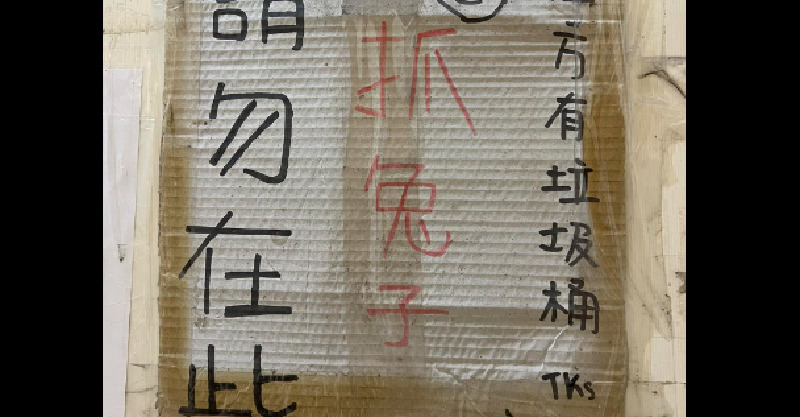 請勿在此
抓兔子
方有垃圾桶
TKs